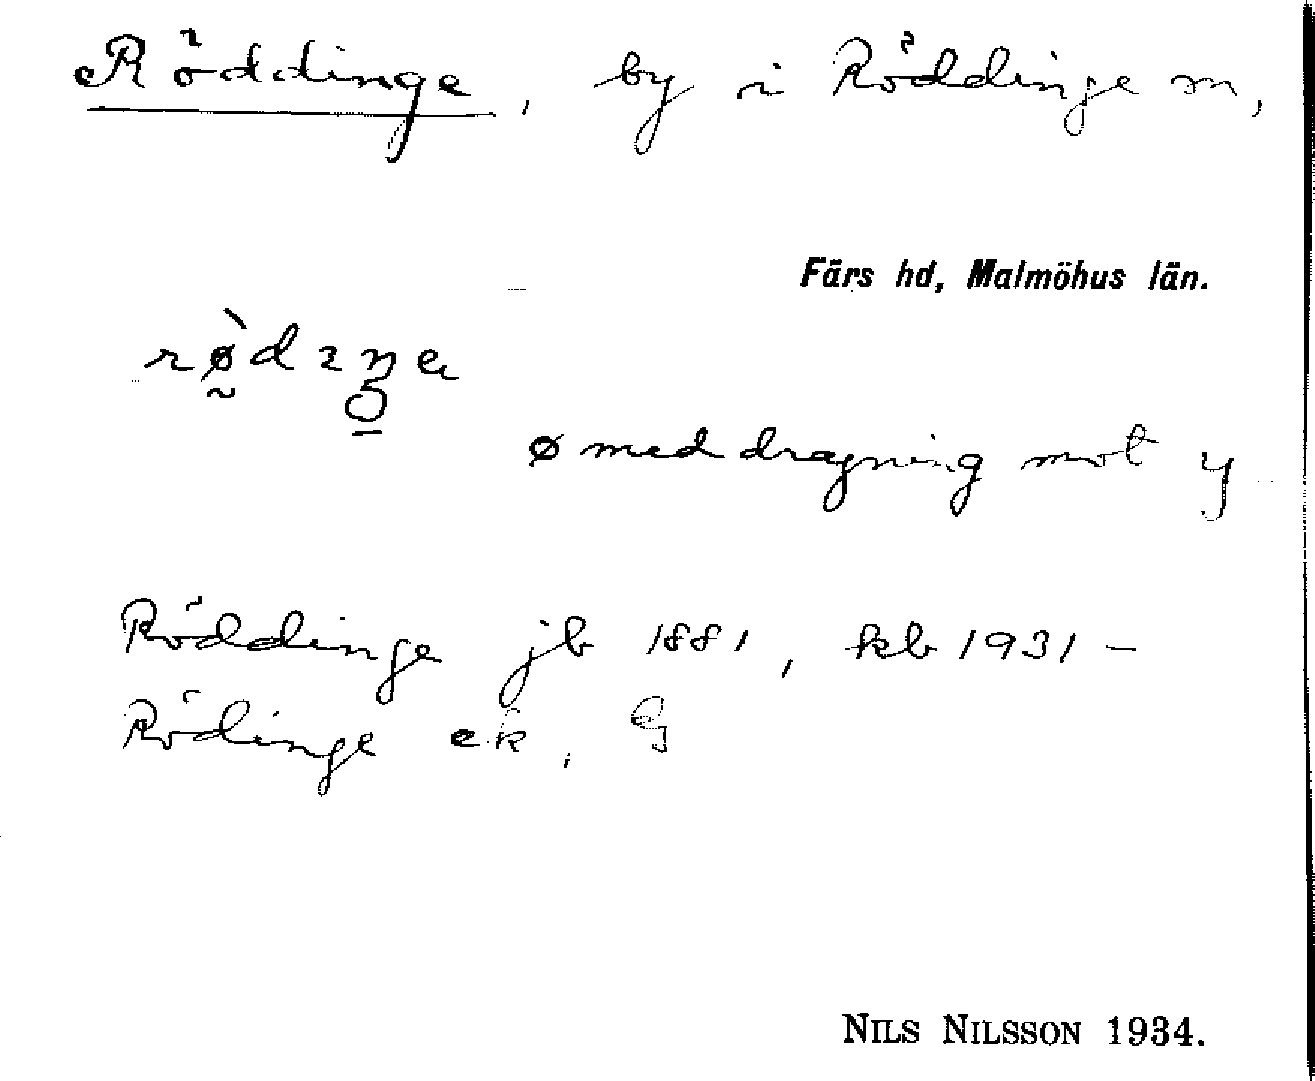 Röddinge, by i Röddinge sn,
Färs hd, Malmöhus län.
ø med dragning mot y
Röddinge jb 1881, kb 1931 –
Rödinge ek, G
NILS NILSSON 1934.